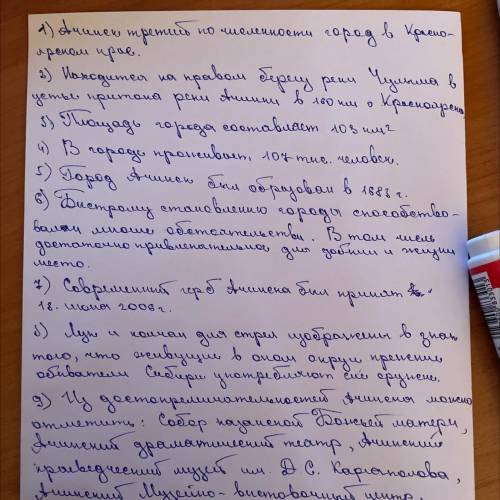 1) Ачинск третий по численности город в Красно-
ярском крае.
2) Находится на правом берегу реки Чулыма в
устье притока реки Ачинки в 180 км о Красноярска
3) Площадь города составляет 103 км²
4) В городе проживает 107 тыс. человек.
5) Город Ачинск был образован в 1683 г.
6) Быстрому становлению города способство-
вали многие обстоятельства. В том числе
достаточно привлекательное для добычи и жизни
место.
7) Современный герб Ачинска был принят
18. июля 2006 г.
8) Лук и колчан для стрел изображены в знак
того, что живущие в оном округе прежние
обиватели Сибири употребляют сие оружие.
9) Из достопримечательностей Ачинска можно
отметить: Собор казанской Божьей матери,
Ачинский драматический театр, Ачинский
краеведческий музей им. Д С. Каргаполова,
Ачинский Музейно-выставочный центр.